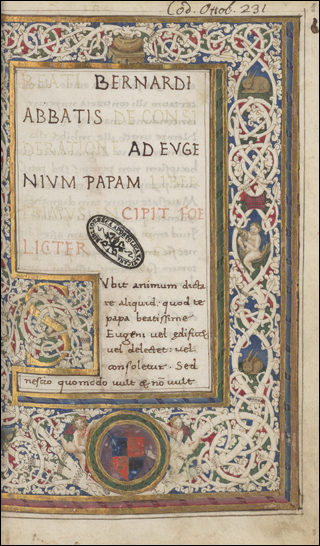 Cod. Ottob. 231
BEATI BERNARDI
ABBATIS DE CONSI
DERATIONE AD EVGE
NIVM PAPAM LIBER
PRIMVS INCIPIT FOE
LICITER
SVbit animum dicta
re aliquid. quod te
papa beatissime
Eugeni uel edificet
uel delectet: uel
consoletur. Sed
nescio quomodo uult & nō uult